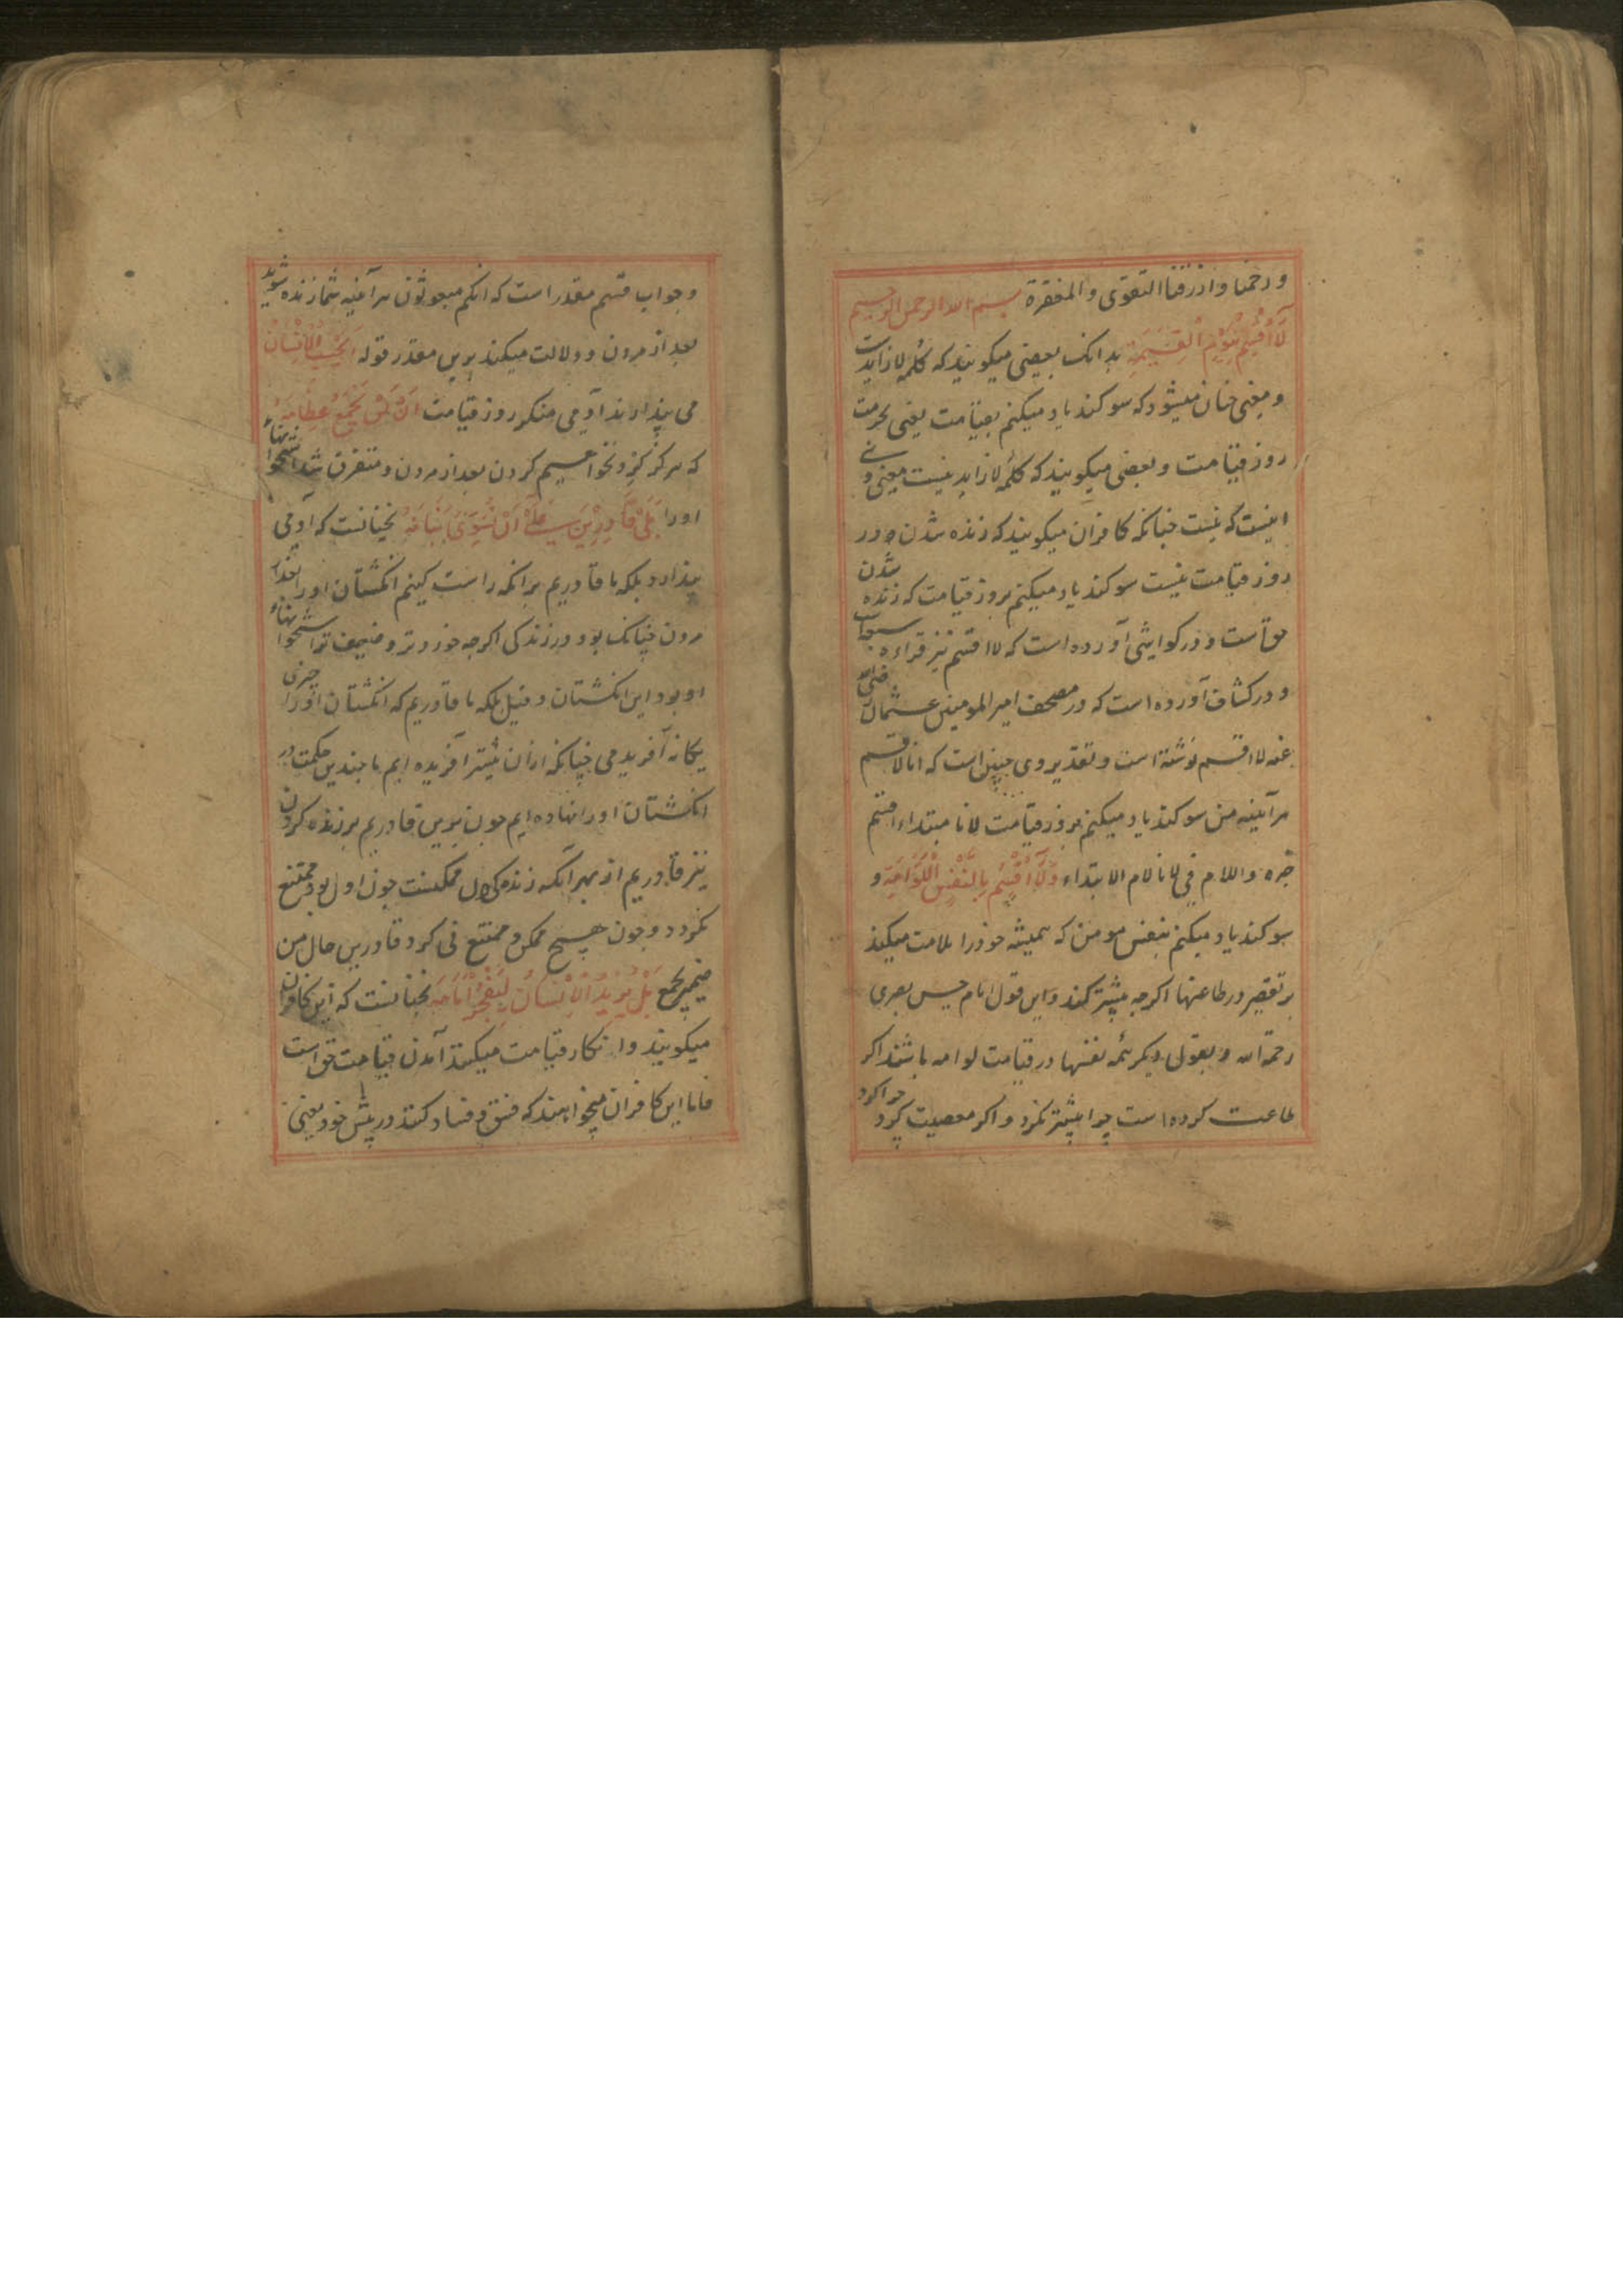 وارحمنا وارزقنا التقوی والمغفرة بسم الله الرحمن الرحیم
لَآ اُقْسِمُ بِیَوْمِ الْقِیٰمَةِ بدانک بعضی میکویند که کلمهٔ لا زایدست
و معنی چنان میشود که سوکند یاد میکنم بقیامت یعنی بحرمت
روز قیامت و بعضی میکویند که کلمهٔ لا زاید نیست معنی وی
اینست که نیست چنانکه کافران میکویند که زنده شدن در
روز قیامت نیست سوکند یاد میکنم بروز قیامت که زنده شدن
حق است و در کواشی آورده است که لا اقسم نیز قراءه
و در کشاف آورده است که در مصحف امیر المومنین عثمان رضی الله
عنه لا اقسم نوشته است و تقدیر وی چنین است که انا لا قسم
هر آینه من سوکند یاد میکنم بروز قیامت لانا مبتداء اقسم
خبره واللام فی لانا لام الابتداء وَلَآ اُقْسِمُ بِالنَّفْسِ اللَّوَّامَةِ و
سوکند یاد میکنم بنفس مومن که همیشه خود را ملامت میکند
بر تقصیر در طاعتها اکرچه بیشتر کند و این قول امام حسن بصری
رحمة الله و بقولی دیکر همه نفسها در قیامت لوامه باشند اکر
طاعت کرده است چرا بیشتر نکرد و اکر معصیت کرد چرا کرد
و جواب قسم مقدر است که انکم مبعوثون هر آینه شما زنده شوید
بعد از مردن و دلالت میکند برین مقدر قوله اَیَحْسَبُ الْاِنْسَانُ
می پندارند آدمی منکر روز قیامت اَنْ لَّنْ نَجْمَعَ عِظَامَهُ
که هرکز کرد نخواهیم کردن بعد از مردن و متفرق شدن استخوانهاء
او را بَلٰی قَادِرِیْنَ عَلٰٓی اَنْ نُسَوِّیَ بَنَانَهُ نچنانست که آدمی
پندارد بلکه ما قادریم برانکه راست کنیم انکشتان او را بعد از
مردن چنانک بود در زندکی اکرچه خوردتر و ضعیف تر استخوانهاء
او بود این انکشتان و قیل بلکه ما قادریم که انکشتان او را چیزی
یکانه آفریدمی چنانکه ازان بیشتر آفریده ایم با چندین حکمت در
انکشتان او را نهاده ایم چون برین قادریم بر زنده کردن
نیز قادریم از بهر آنکه زندکی اول ممکنست چون اول بود ممتنع
نکردد و چون هیچ ممکن ممتنع نی کرد قادرین حال من
ضمیر نجمع بَلْ یُرِیْدُ الْاِنْسَانُ لِیَفْجُرَ اَمَامَهُ نچنانست که این کافران
میکویند و انکار قیامت میکنند آمدن قیامت حق است
فاما این کافران میخواهند که فسق و فساد کنند در پیش خود یعنی